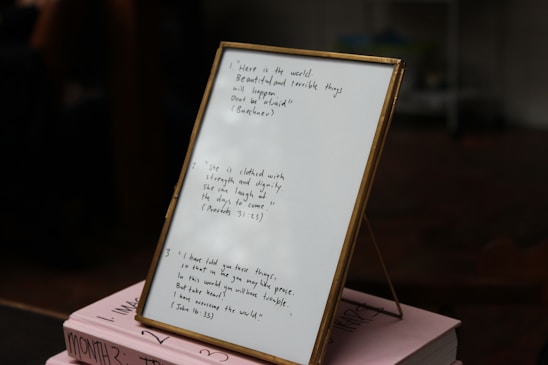 1. "Here is the world.
Beautiful and terrible things
will happen
Dont be afraid"
(Buechner)
2 "She is clothed with
strength and dignity.
She can laugh at
the days to come."
(Proverbs 31:25)
3 "I have told you these things,
so that in me you may have peace.
In this world you will have trouble.
But take heart!
I have overcome the world."
(John 16:33)
1.
2
3
MONTH 3: